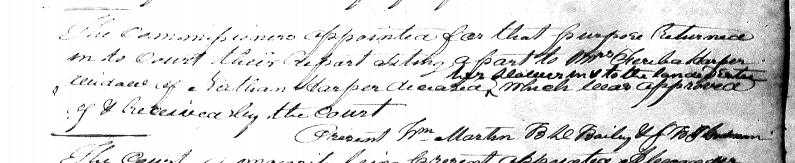 The Commissioners appointed for that purpose Returned
in to Court their report setting apart to Mrs Cheriba Harper
her dower in & to the lands & Estate
widow of Nathan Harper deceased ^ which was approved
of & received by the Court
Present Wm Martin B L Bailey & J B
The Court a majority being present appointed